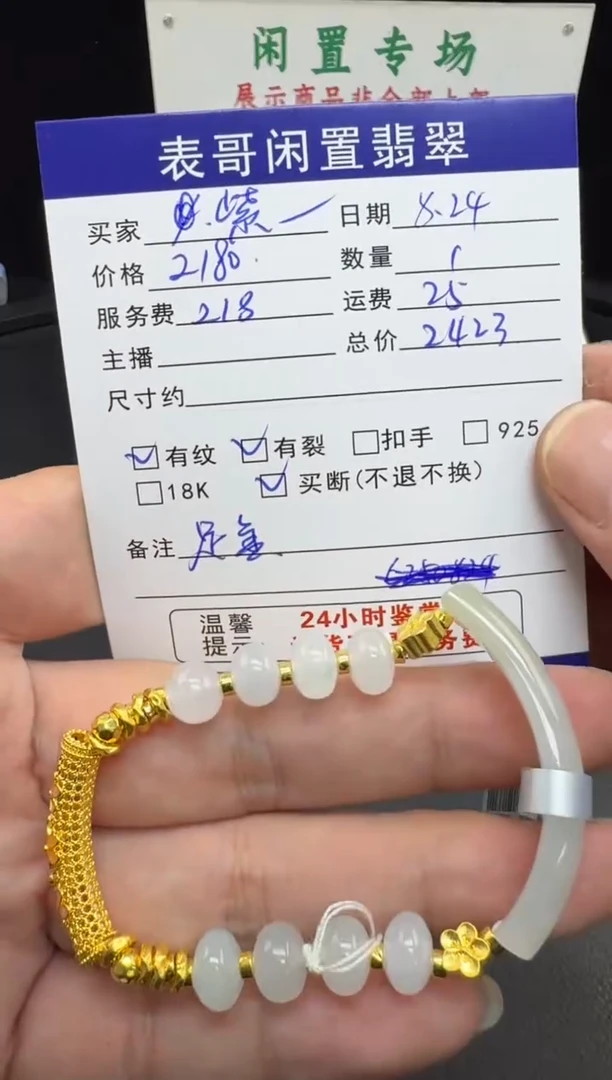 闲置专场
展示商品非全部上架
表哥闲置翡翠
买家 紫 日期 8.24
价格 2180 数量 1
服务费 218 运费 25
主播 总价 2423
尺寸约
☑有纹 ☑有裂 ☐扣手 ☐925
☐18K ☑买断(不退不换)
备注 足金
温馨 24小时鉴赏
提示